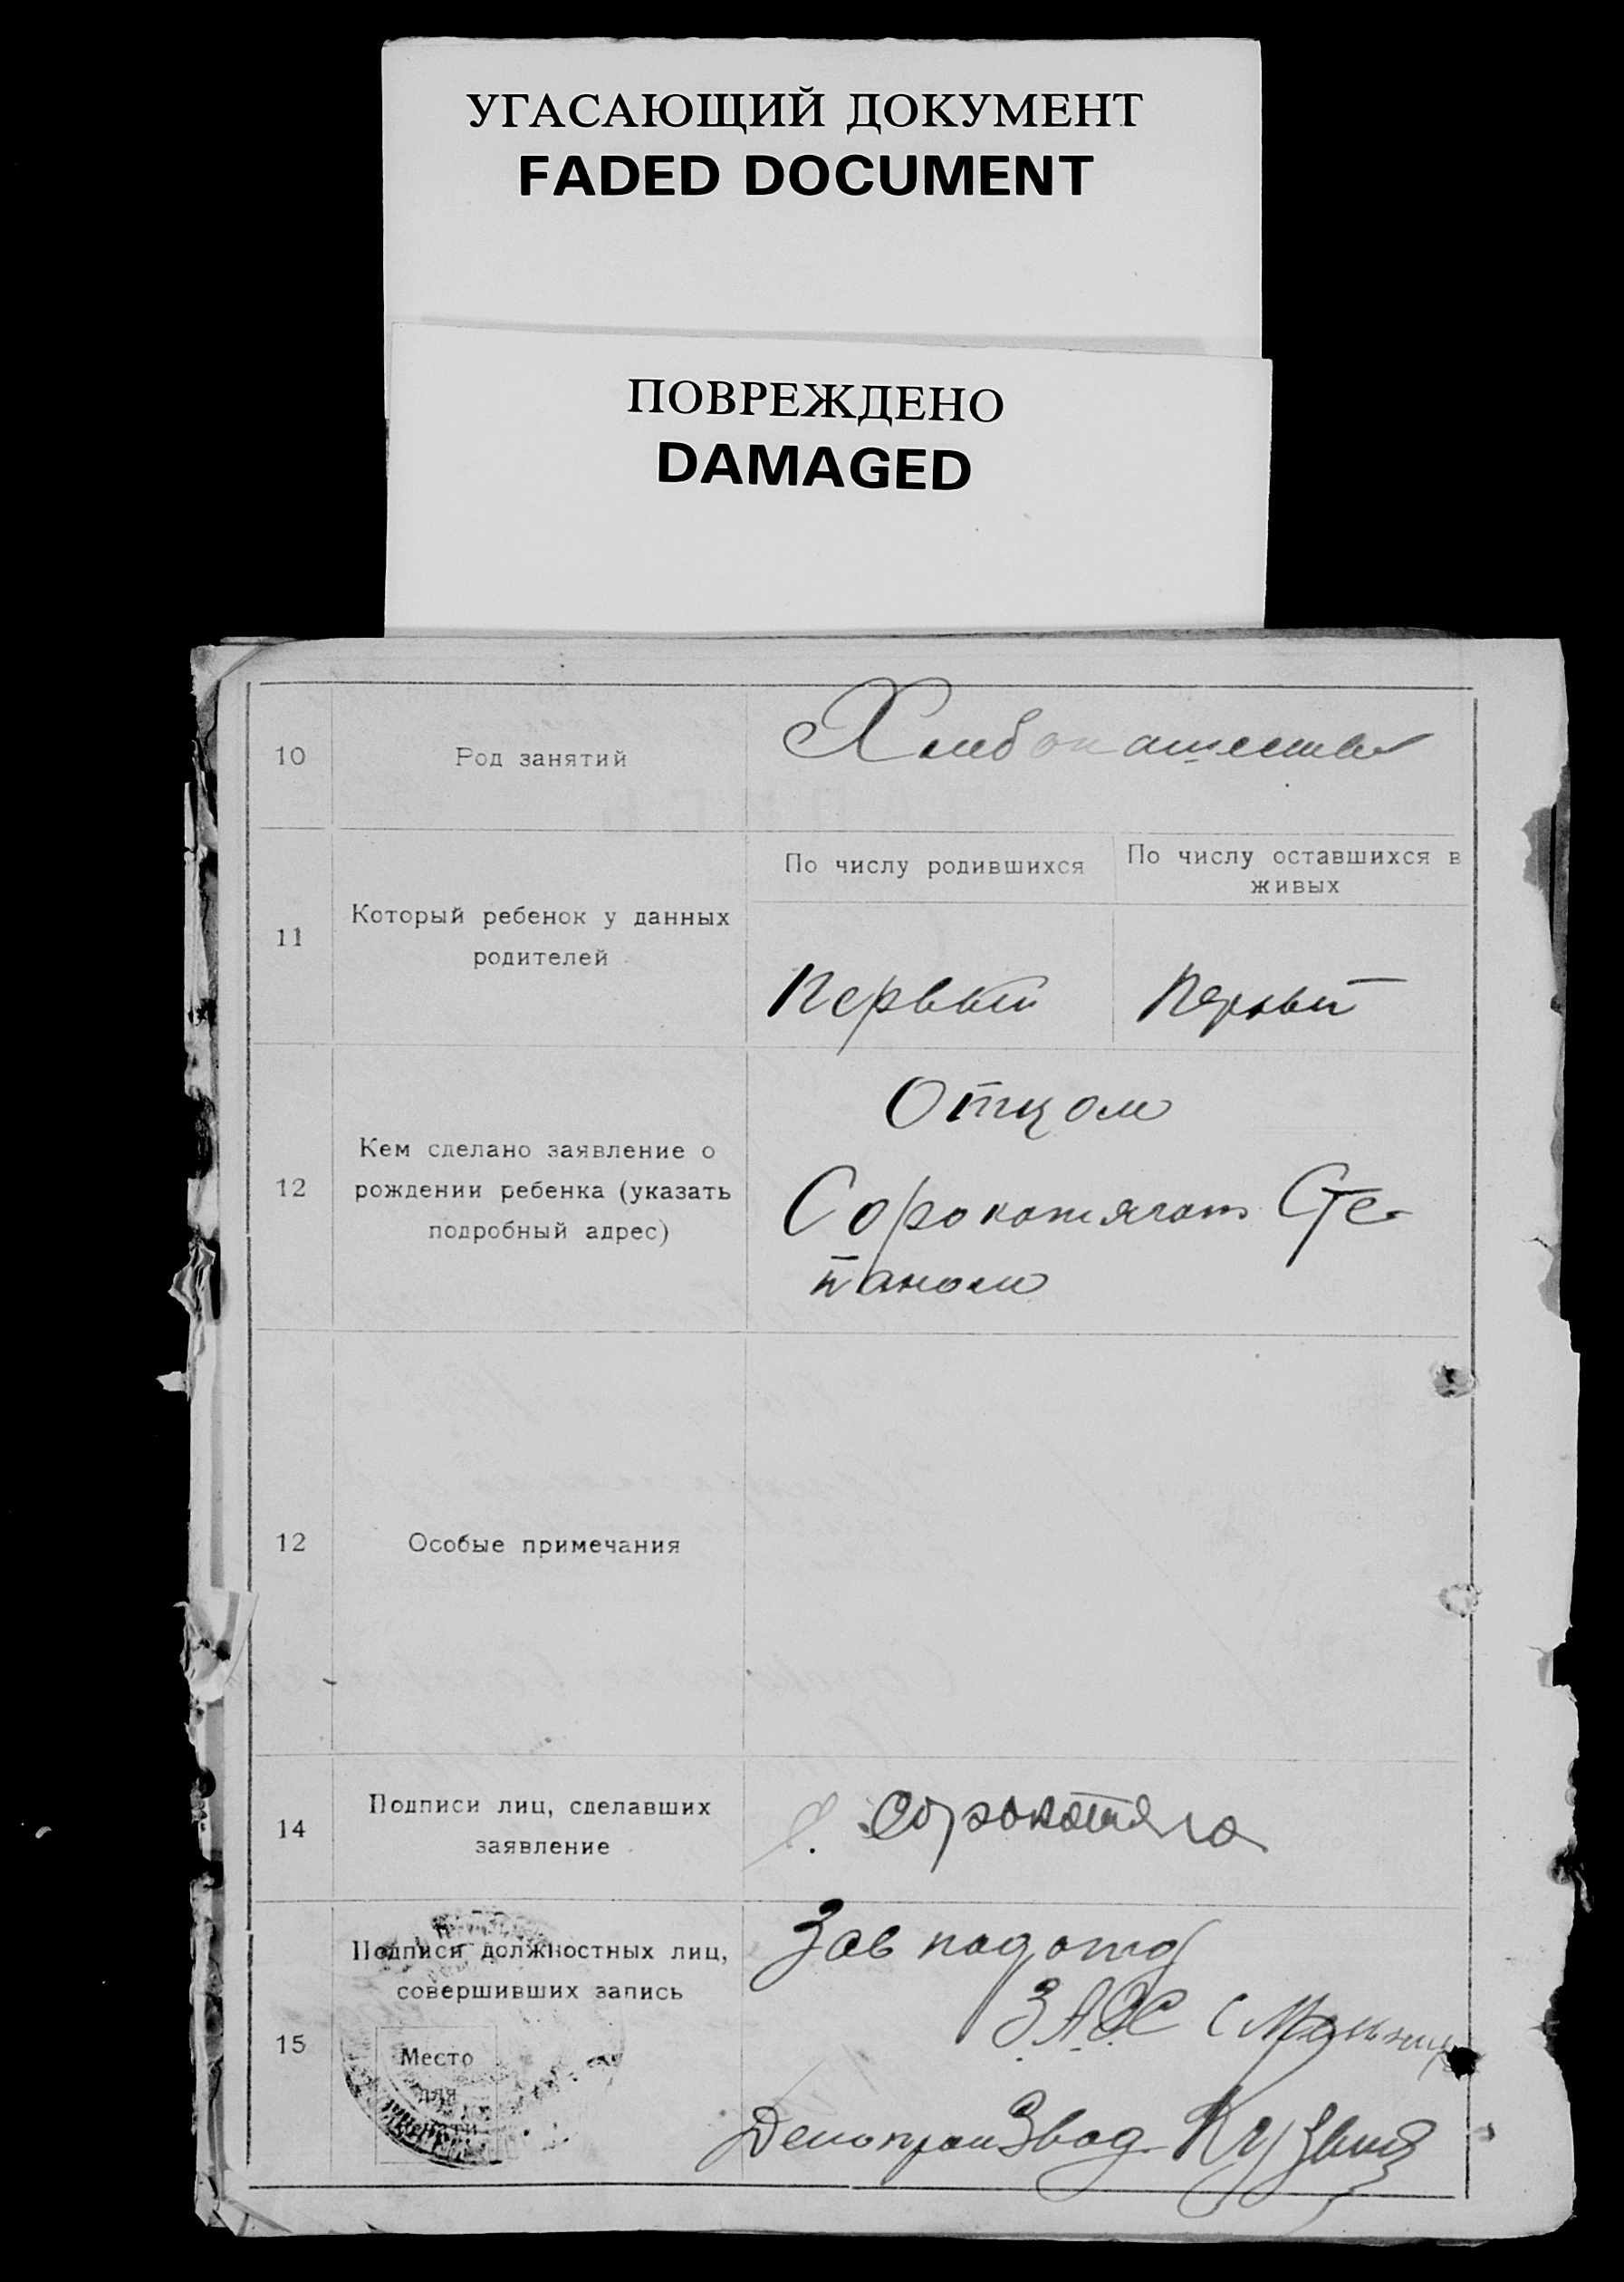 УГАСАЮЩИЙ ДОКУМЕНТ
FADED DOCUMENT
ПОВРЕЖДЕНО
DAMAGED
10
Род занятий
Хлебопашество
11
Который ребенок у данных
родителей
По числу родившихся
По числу оставшихся в
живых
Первый
Первый
12
Кем сделано заявление о
рождении ребенка (указать
подробный адрес)
Отцом
Сорокотягою Сте-
паном
12
Особые примечания
14
Подписи лиц, сделавших
заявление
Сорокотяга
15
Подписи должностных лиц,
совершивших запись
Место
для
печати
Зав подотд
ЗАГС
Делопроизвод